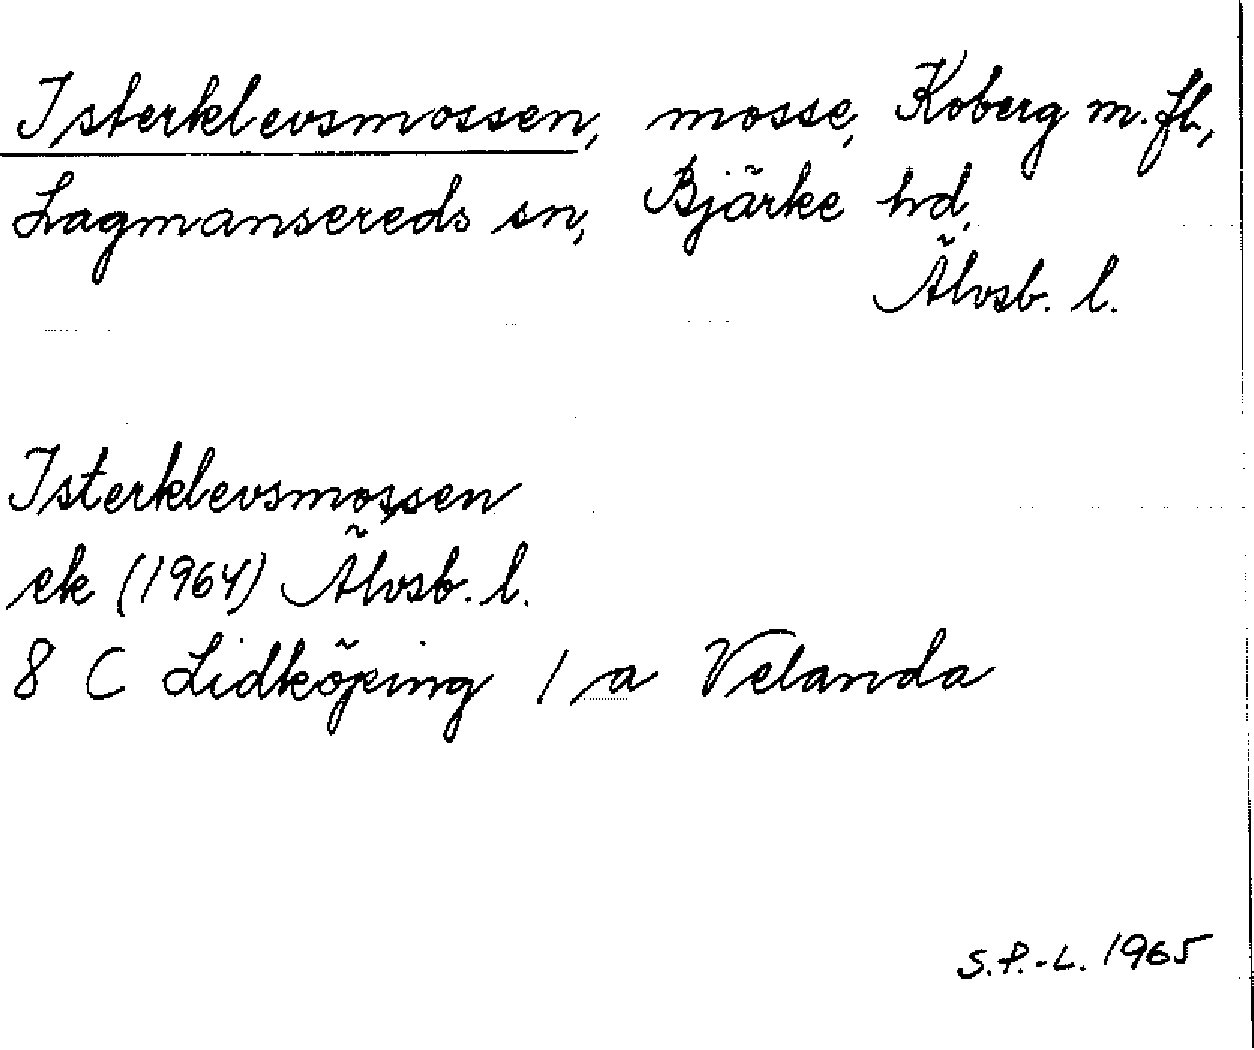 Isterklevsmossen, mosse, Koberg m. fl.,
Lagmansereds sn, Bjärke hd,
Älvsb. l.
Isterklevsmossen
ek (1964) Älvsb. l.
8 C Lidköping 1 a Velanda
S.P.-L. 1965